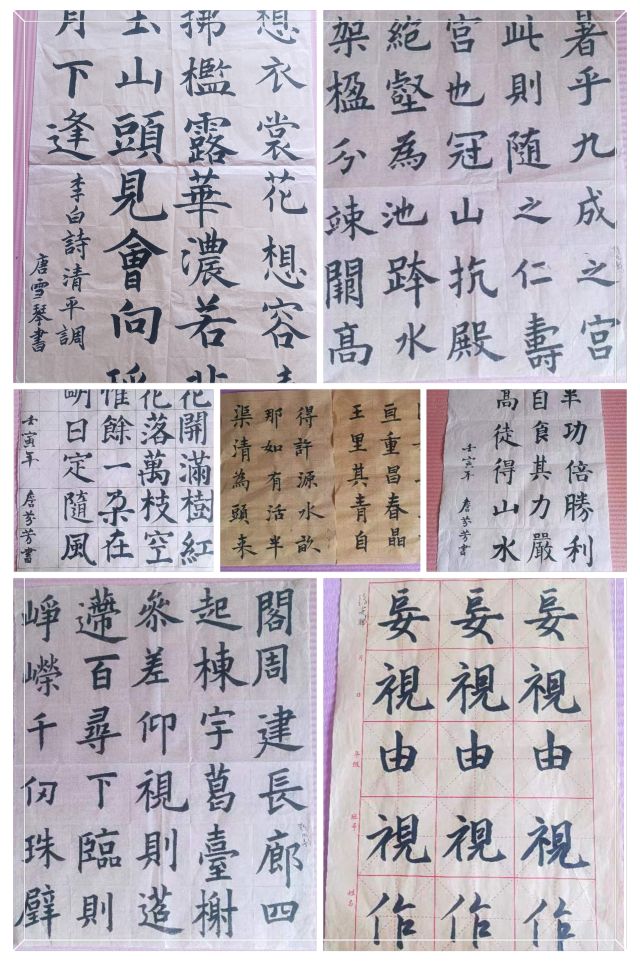 想衣裳花想容
拂檻露華濃若
玉山頭見會向
月下逢
李白詩清平調
唐雪琴書
暑乎九成之宮
此則隨之仁壽
宮也冠山抗殿
絕壑為池跨水
架楹分竦闕高
花開滿樹紅
花落萬枝空
惟餘一朵在
明日定隨風
壬寅年 唐芬芳書
亘重昌春晶
王里其青自
得許源水畝
那如有活半
渠清為頭來
半功倍勝利
自食其力嚴
高徒得山水
壬寅年 唐芬芳書
閣周建長廊四
起棟宇葛臺榭
參差仰視則迢
遰百尋下臨則
崢嶸千仞珠璧
妄妄妄
視視視
由由由
視視視
作作作
月 日
年級
姓名